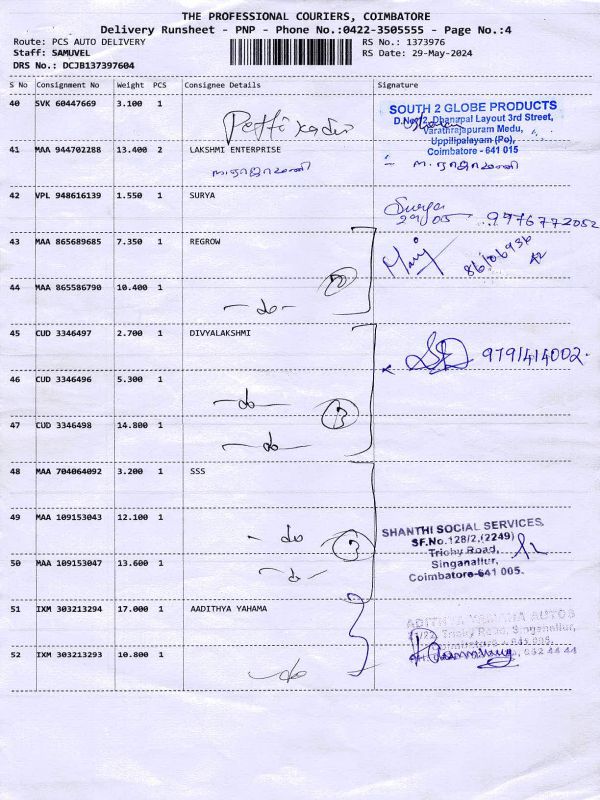 THE PROFESSIONAL COURIERS, COIMBATORE
Delivery Runsheet - PNP - Phone No.:0422-3505555 - Page No.:4
Route: PCS AUTO DELIVERY
RS No.: 1373976
Staff: SAMUVEL
RS Date: 29-May-2024
DRS No.: DCJB137397604
S No Consignment No Weight PCS Consignee Details Signature
40 SVK 60447669 3.100 1
SOUTH 2 GLOBE PRODUCTS
Dhanapal Layout 3rd Street,
Varathrajapuram Medu,
Uppilipalayam (Po),
Coimbatore - 641 015
41 MAA 944702288 13.400 2 LAKSHMI ENTERPRISE
42 VPL 948616139 1.550 1 SURYA
Surya
29/05 9976772052
43 MAA 865689685 7.350 1 REGROW
44 MAA 865586790 10.400 1
-do-
45 CUD 3346497 2.700 1 DIVYALAKSHMI
9791414002.
46 CUD 3346496 5.300 1
-do-
47 CUD 3346498 14.800 1
-do-
48 MAA 704064092 3.200 1 SSS
49 MAA 109153043 12.100 1
- do
3
SHANTHI SOCIAL SERVICES,
SF.No.128/2,(2249)
Trichy Road,
Singanallur,
Coimbatore-641 005.
50 MAA 109153047 13.600 1
-do-
51 IXM 303213294 17.000 1 AADITHYA YAHAMA
ADITHYA YAMAHA AUTOS
Trichy Road, Singanallur,
52 IXM 303213293 10.800 1
-do